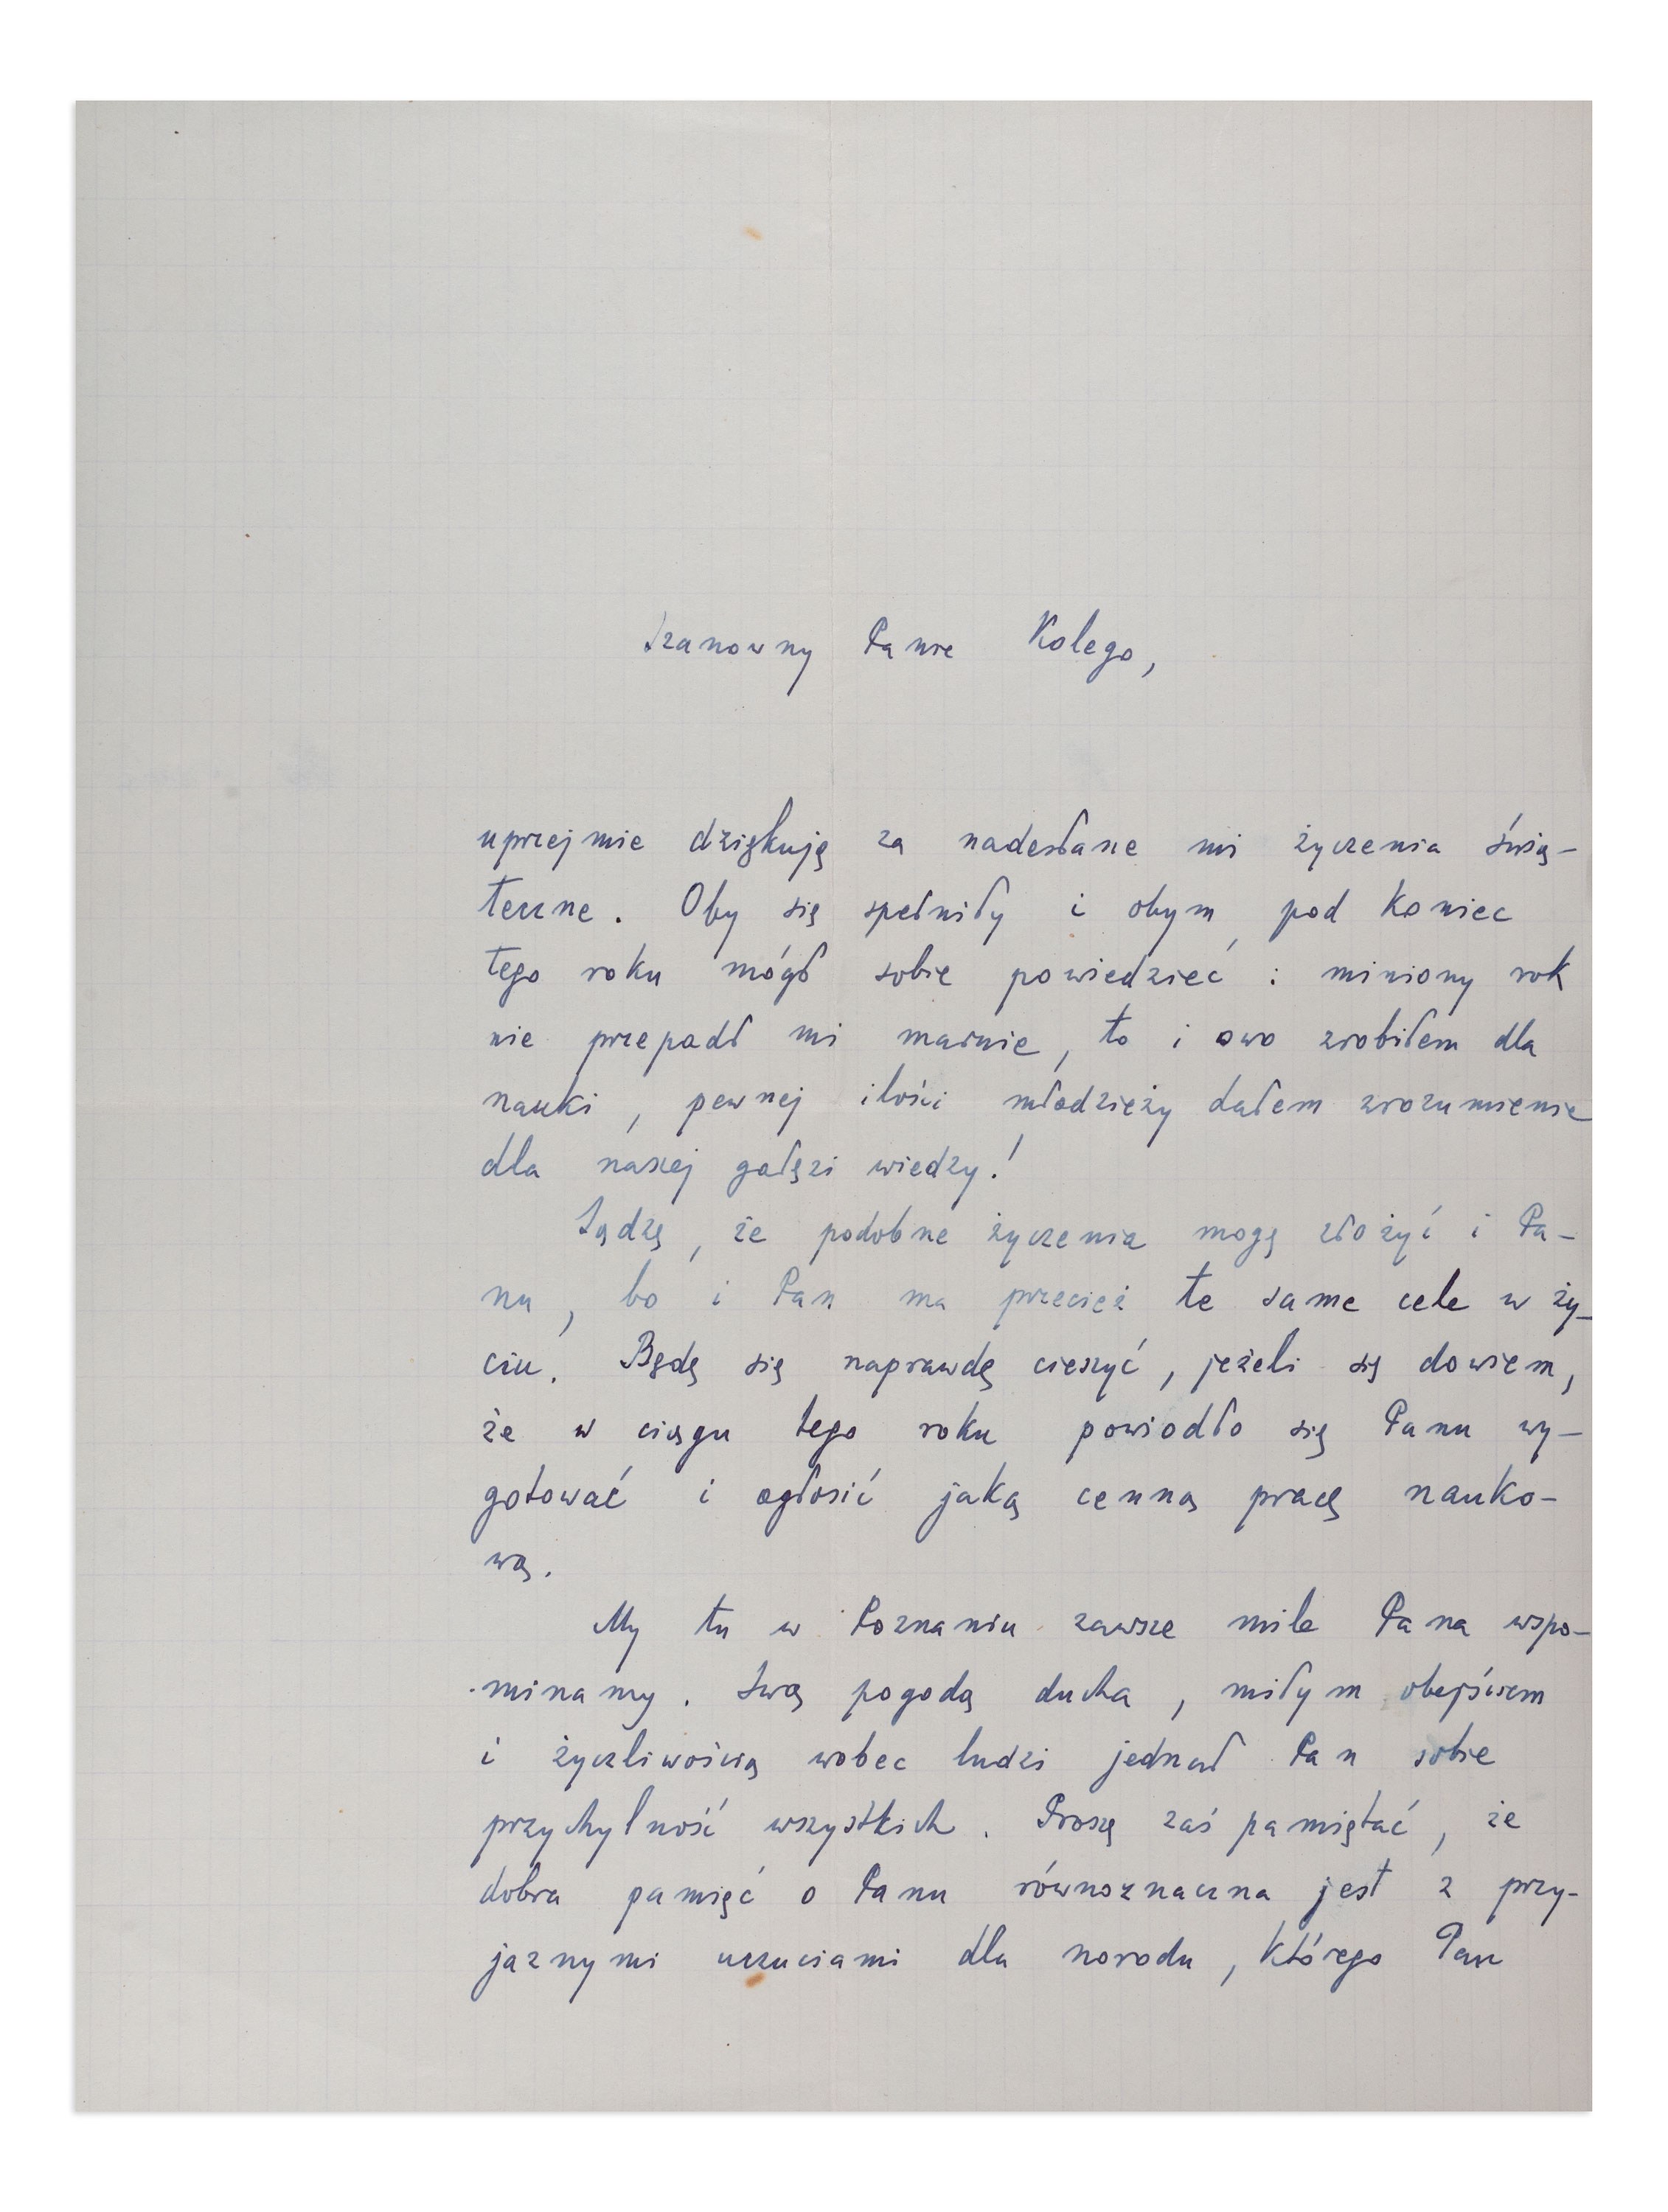 Szanowny Panie Kolego,
uprzejmie dziękuję za nadesłane mi życzenia świą-
teczne. Oby się spełniły i obym, pod koniec
tego roku mógł sobie powiedzieć: miniony rok
nie przepadł mi marnie, to i owo zrobiłem dla
nauki, pewnej ilości młodzieży dałem zrozumienie
dla naszej gałęzi wiedzy!
Sądzę, że podobne życzenia mogę złożyć i Pa-
nu, bo i Pan ma przecież te same cele w ży-
ciu. Będę się naprawdę cieszyć, jeżeli się dowiem,
że w ciągu tego roku powiodło się Panu wy-
gotować i ogłosić jaką cenną pracę nauko-
wą.
My tu w Poznaniu zawsze mile Pana wspo-
minamy. Swą pogodą ducha, miłym obejściem
i życzliwością wobec ludzi jednał Pan sobie
przychylność wszystkich. Proszę zaś pamiętać, że
dobra pamięć o Panu równoznaczna jest z przy-
jaznymi uczuciami dla narodu, którego Pan